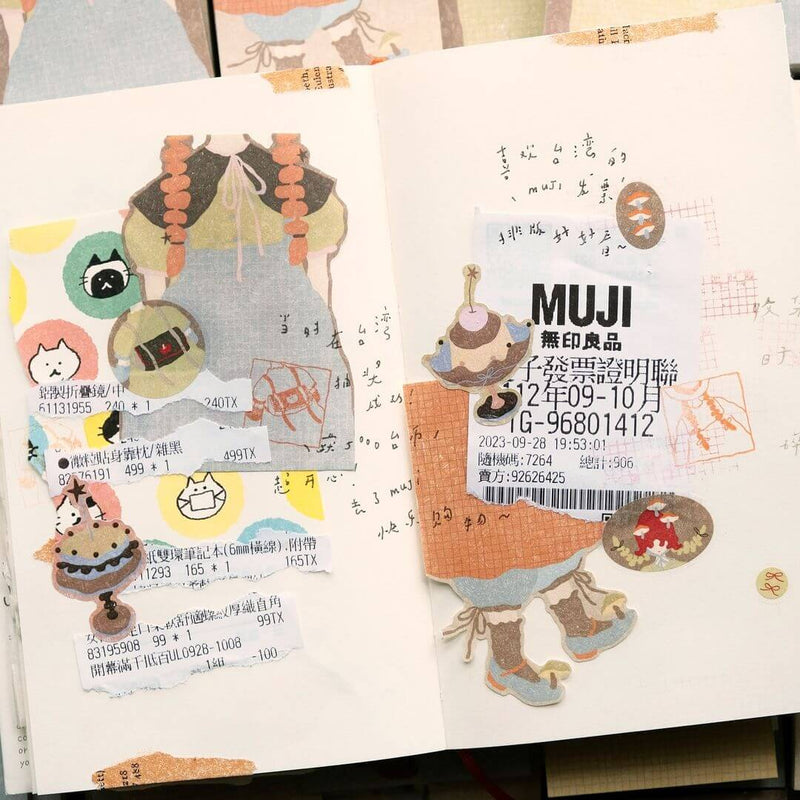 鋁製折疊鏡/中
61131955 240 * 1 240TX
●微粒貼身靠枕/雜黑
82576191 499 * 1 499TX
紙雙環筆記本(6mm橫線).附帶
11293 165 * 1 165TX
舒適螺紋厚織直角
99TX
83195908 99 * 1
開幕滿千抵百UL0928-1008
1組 -100
当时在台湾
抽奖
成功!
获5000台币!
超开心.
去了muji
快乐购物~
喜欢台湾的
muji发票,
排版我好看~
MUJI
無印良品
子發票證明聯
112年09-10月
TG-96801412
2023-09-28 19:53:01
隨機碼:7264 總計:906
賣方:92626425